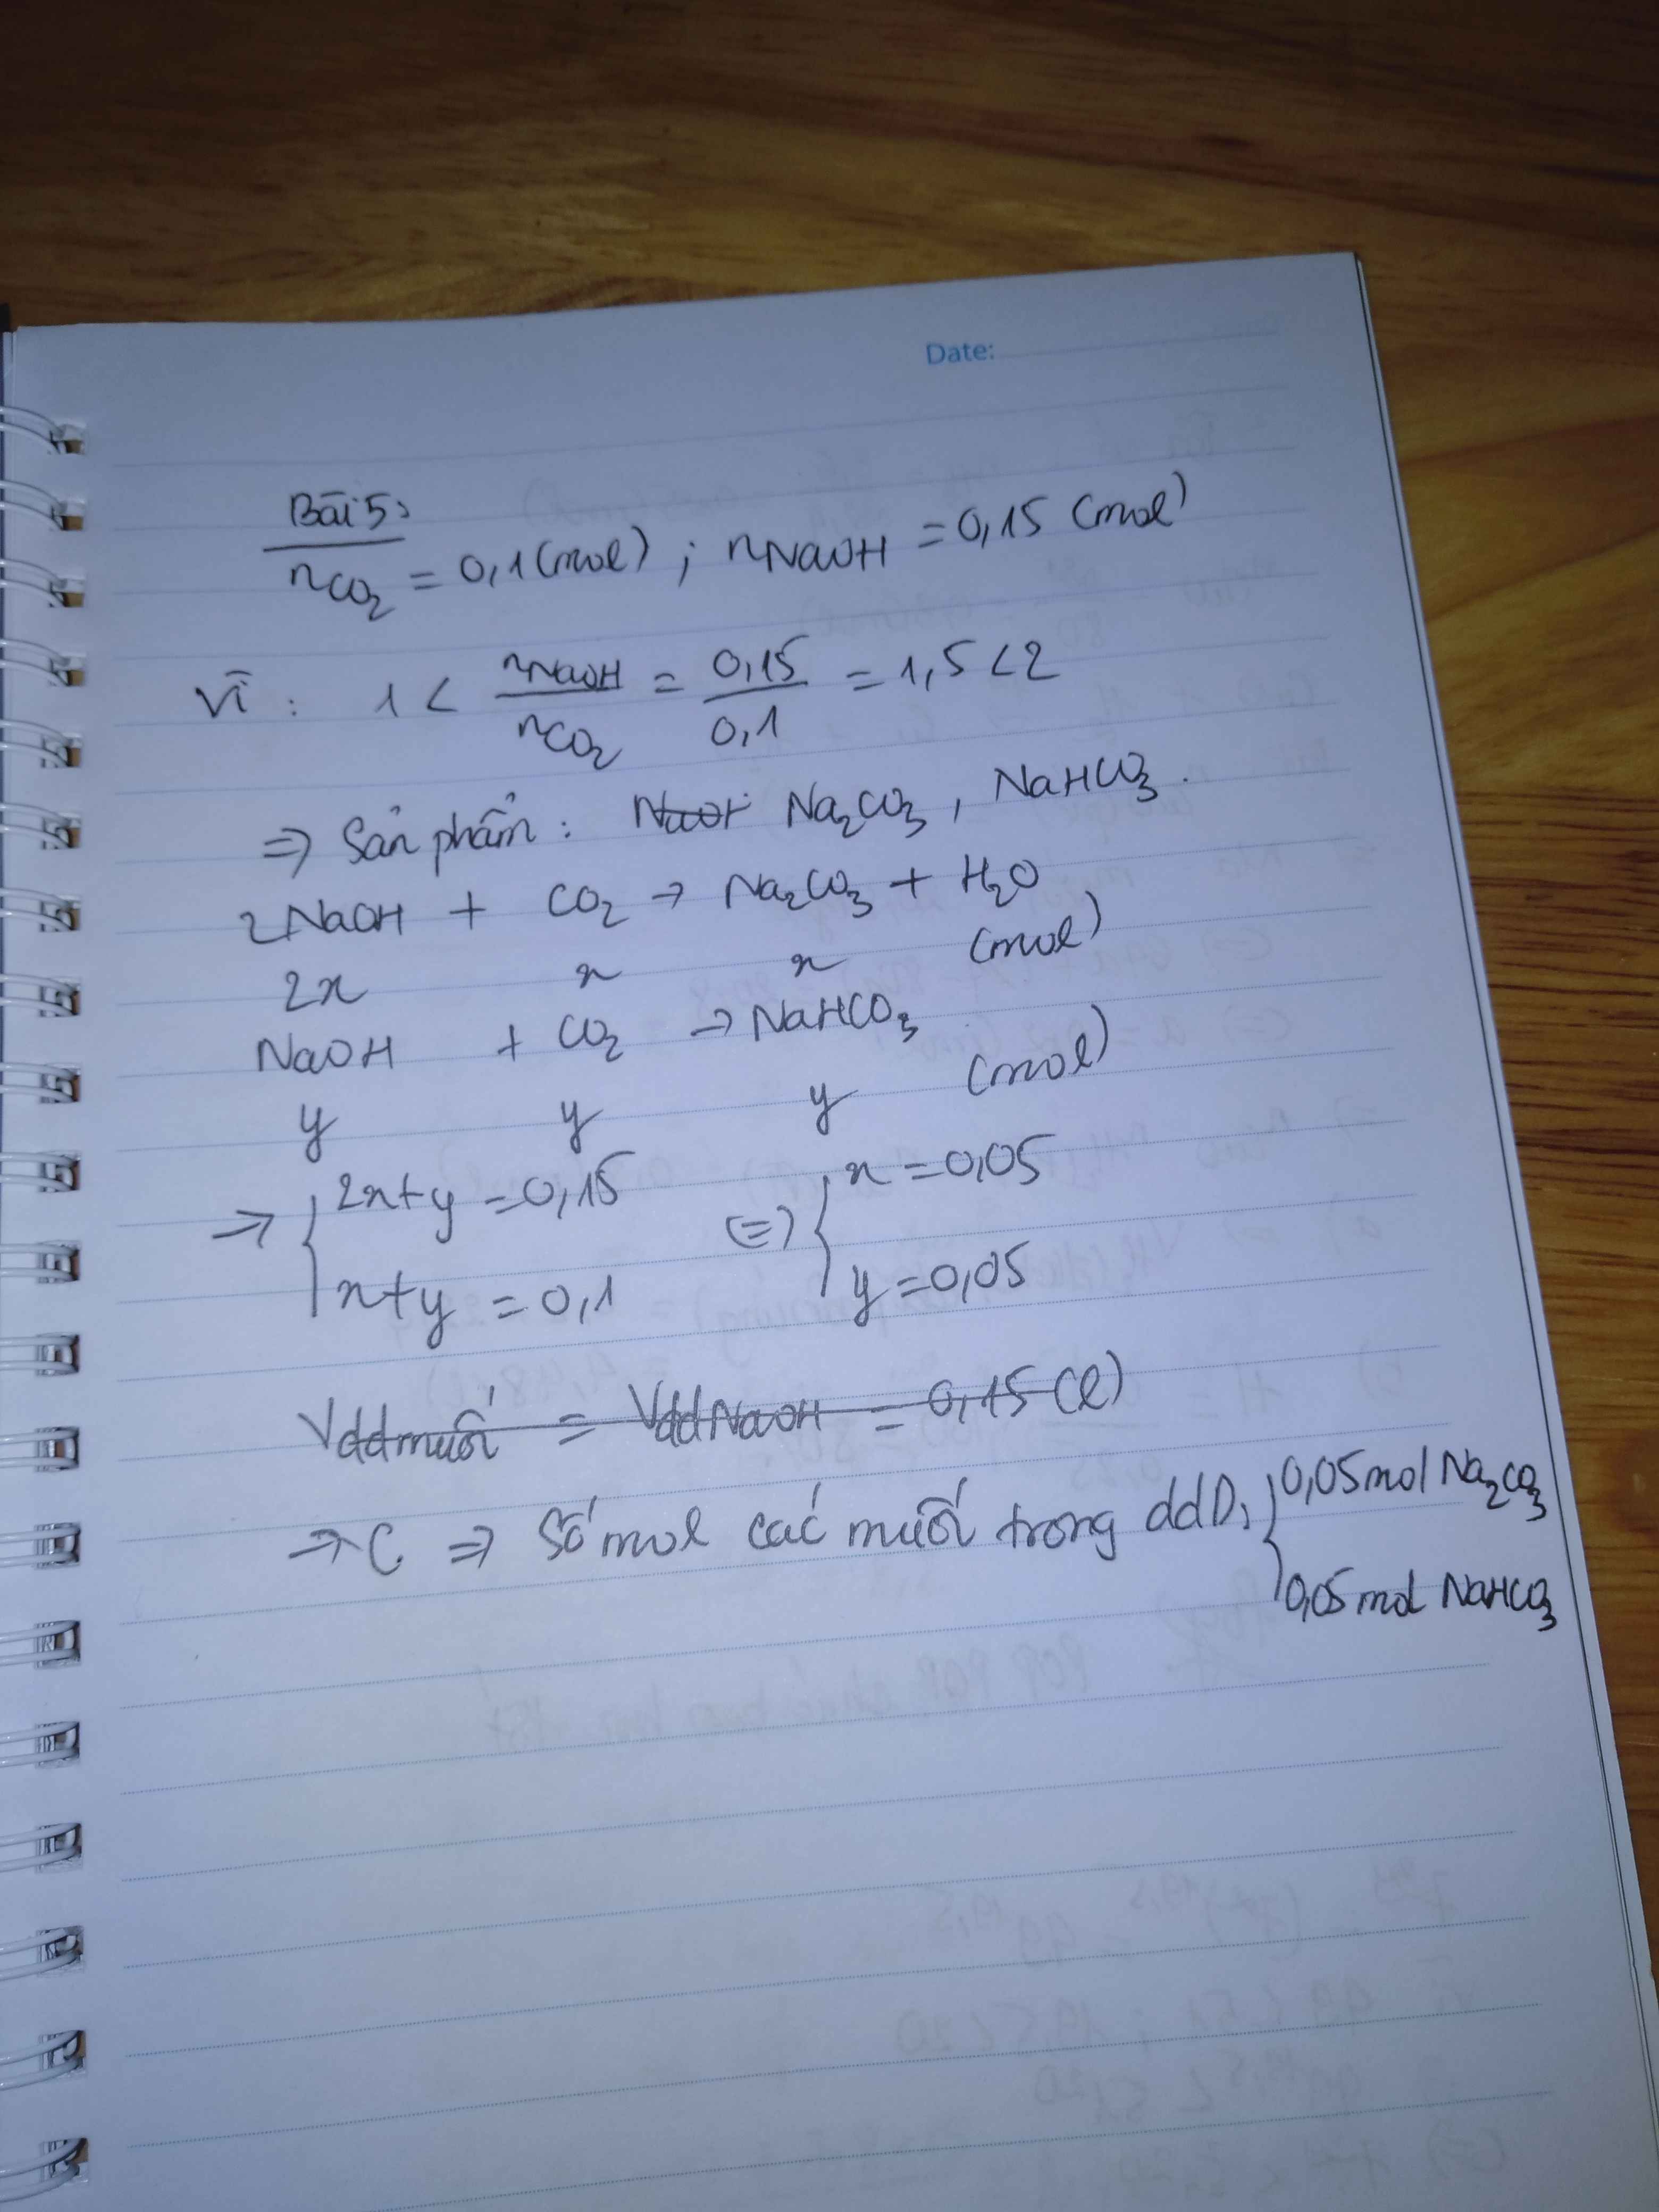 Date:
Bài 5:
nCO2 = 0,1 (mol) ; nNaOH = 0,15 (mol)
Vì : 1 < nNaOH/nCO2 = 0,15/0,1 = 1,5 < 2
=> Sản phẩm : Na2CO3 , NaHCO3 .
2NaOH + CO2 → Na2CO3 + H2O
2x x x (mol)
NaOH + CO2 → NaHCO3
y y y (mol)
→ { 2x+y = 0,15 (=) { x = 0,05
x+y = 0,1 y = 0,05
Vddmuối = VddNaOH = 0,15 (l)
=> C => Số mol các muối trong ddD: { 0,05 mol Na2CO3
0,05 mol NaHCO3